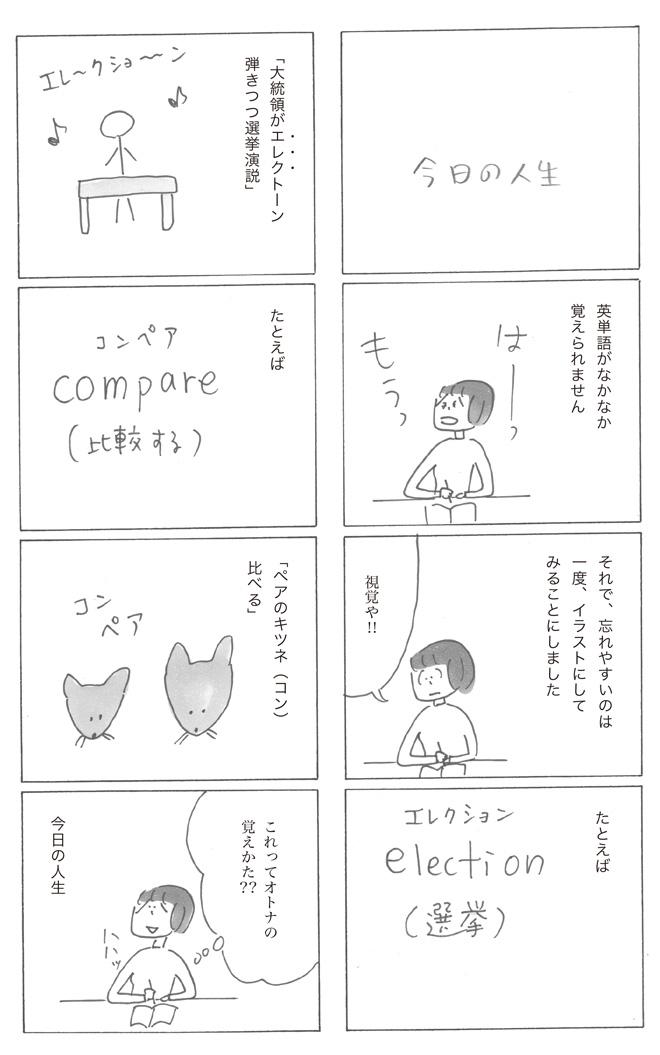 今日の人生
英単語がなかなか
覚えられません
はーっ
もうっ
それで、忘れやすいのは
一度、イラストにして
みることにしました
視覚や!!
たとえば
エレクション
election
(選挙)
「大統領がエレクトーン
弾きつつ選挙演説」
エレ〜クショ〜〜ン
たとえば
コンペア
compare
(比較する)
「ペアのキツネ(コン)
比べる」
コン
ペア
これってオトナの
覚えかた??
ハハッ
今日の人生